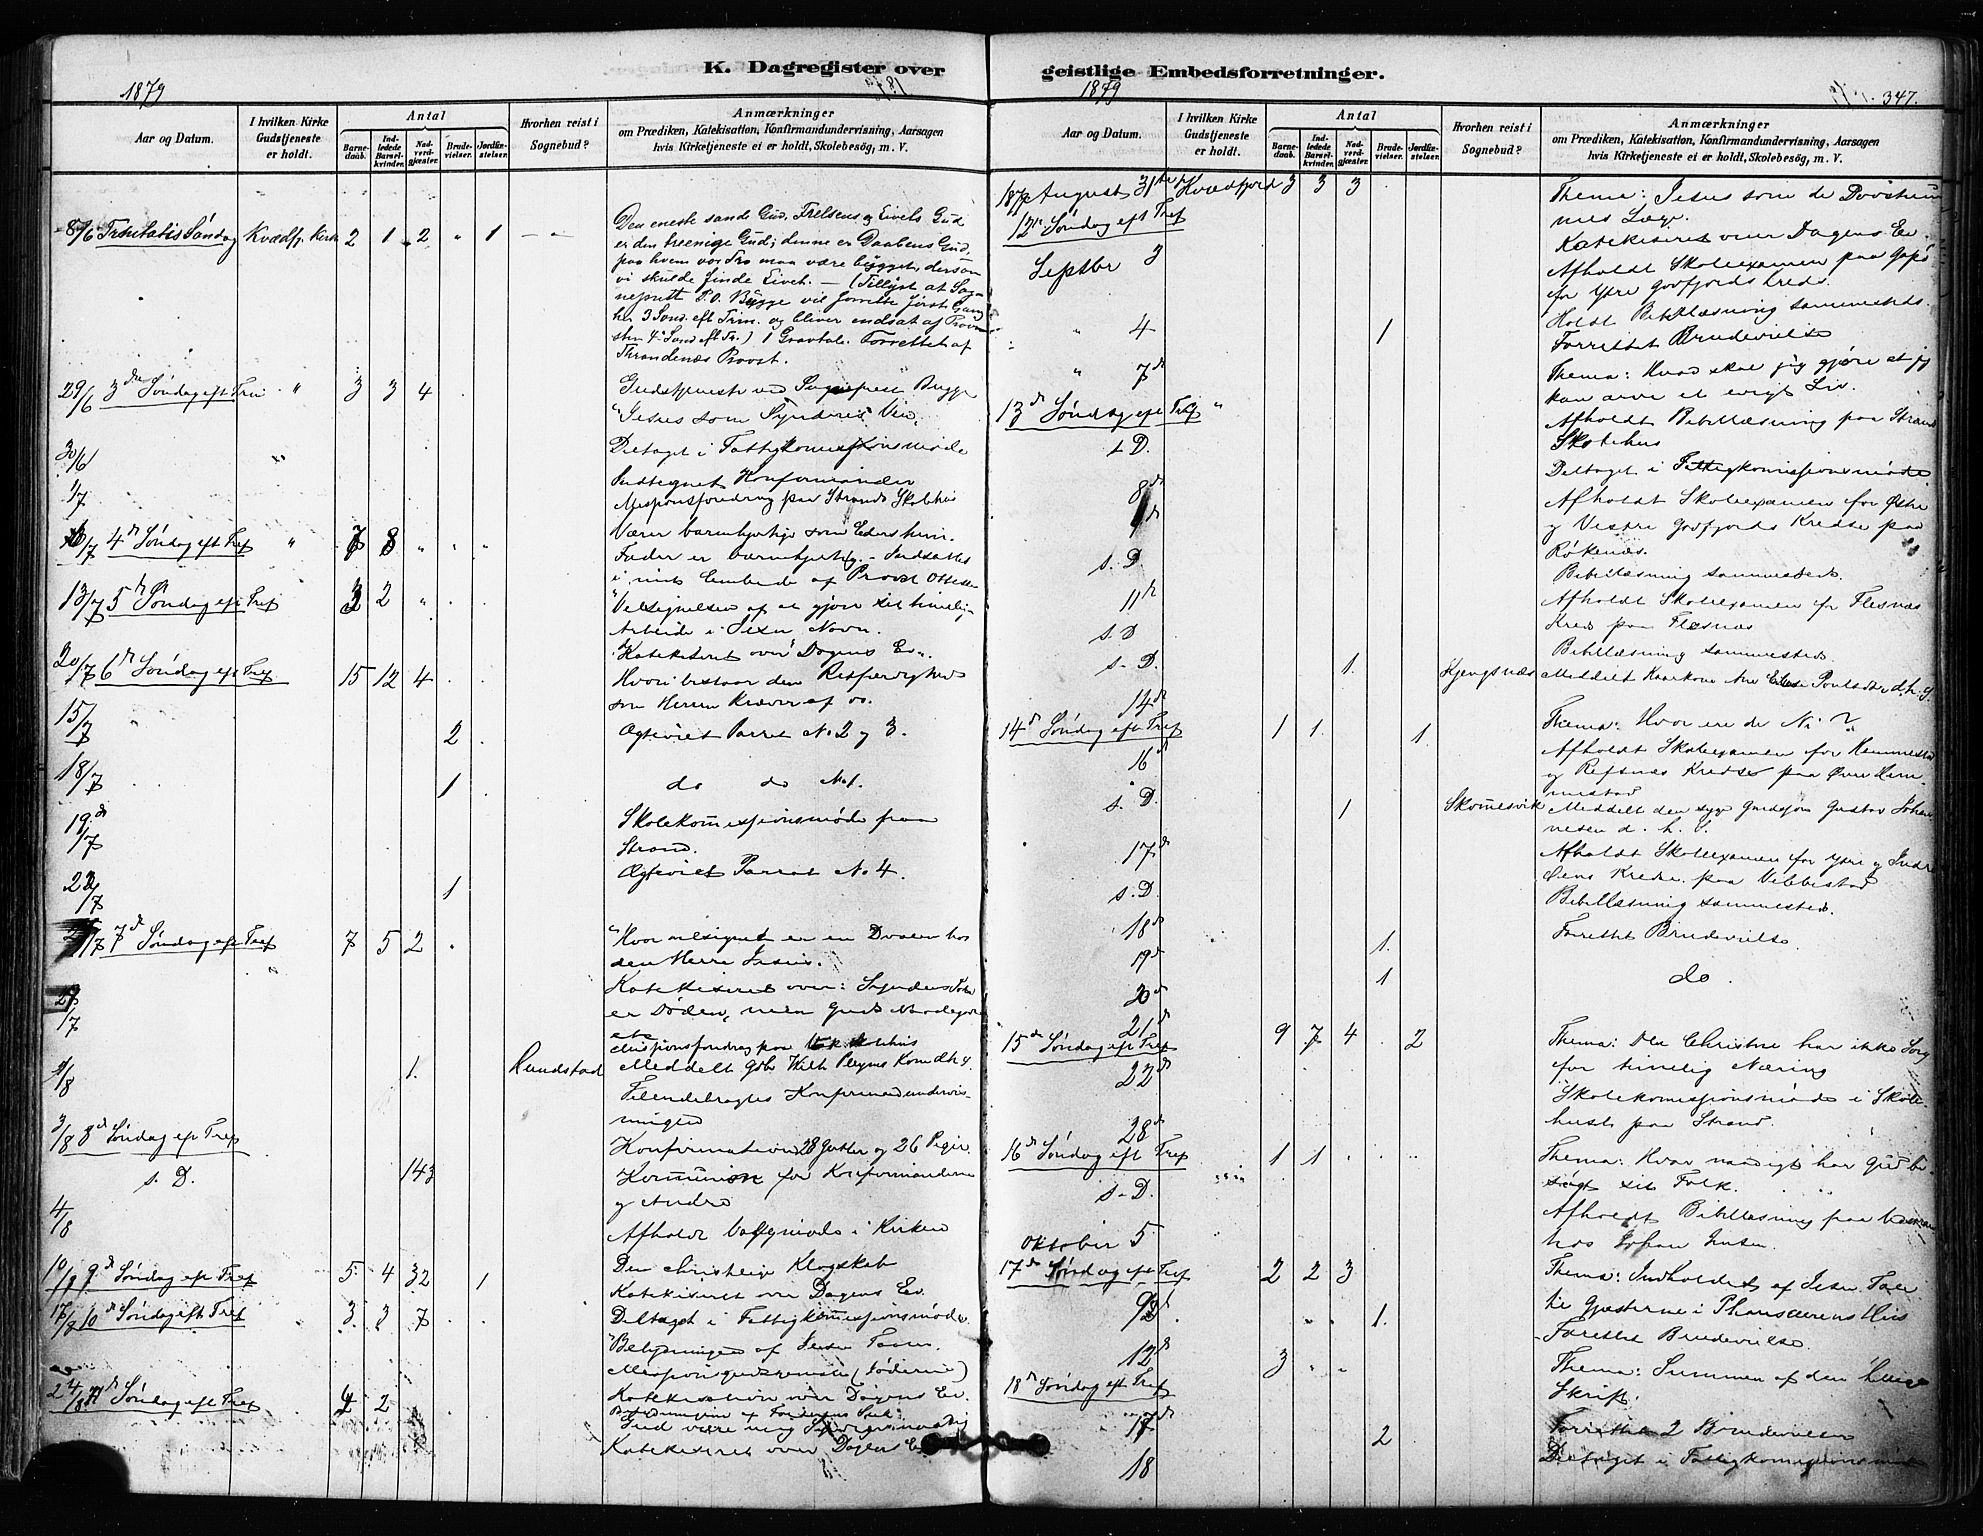 K. Dagregister over
1879
Aar og Datum.
I hvilken Kirke Gudstjeneste er holdt.
Antal
Barnedaab.
Indledede Barselkvinder.
Nadverdgjæster.
Brudevielser.
Jordfæstelser.
Hvorhen reist i Sognebud?
Anmærkninger
om Prædiken, Katekisation, Konfirmandundervisning, Aarsagen
hvis Kirketjeneste ei er holdt, Skolebesøg, m. V.
8/6 Trinitatis Søndag Kvædfj. Kirke 2 1 2 " 1 Den eneste sande Gud, Frelsens og Livets Gud
er den treenige Gud; denne er Daabens Gud,
paa hvem vor Tro maa være bygget, dersom
vi skulde finde Livet. — (Tillyst at Sog-
nepræst P. O. Bygge vil forrette første Gang
her 3 Sønd. eft Trin. og bliver indsat af Prov-
sten 4 Sønd eft Tr.) 1 Gravtale. Forrettet af
Throndenæs Provst.
29/6 3die Søndag eft Trin " 3 3 4 Gudstjeneste ved Sognepræst Bygge
"Jesus som Synderes Ven"
30/6 " Deltaget i Fattigkomissionsmøde
1/7 Indtegnet Konfirmander
Missionsforedrag paa Strands Skolehus
6/7 4d Søndag eft Tref " 7 8 " " " Værer barmhjertige som Eders himm.
Fader er barmhjertig. - Indsattes
i mit Embede af Provst Ottesen
13/7 5d Søndag eft Tref 3 2 " "Velsignelsen af at gjøre sit timelige
Arbeide i Jesu Navn.
Katekiseret over Dagens Ev.
20/7 6d Søndag eft Tref 15 12 4 Hvori bestaar den Retfærdighed
som Herren kræver af os.
15/7 2 Ægteviet Parret No 2 og 3.
18/7 1 do do No 1.
19/7 Skolekomissionsmøde paa
Strand.
1 Ægteviet Parret No 4.
7d Søndag eft Tref 7 5 2 "Hvor velsignet er en Dvælen hos
den Herre Jesus.
Katekiseret over: Syndens Sold
er Døden, men Guds Naadegave
etc
Missionsforedrag paa Skolehus
Rundstad 1. Meddelt
Tilendebragtes Konfirmandundervis-
ningen
3/8 8d Søndag eft Tref Konfirmation 28 Gutter og 26 Piger
s. D. 143 Kommunion for Konfirmanderne
og Andre
4/8 Afholdt Valgmøde i Kirken
10/8 9d Søndag eft Tref 5 4 32 1 Den christelige Klogskab
Katekiseret over Dagens Ev.
17/8 10d Søndag eft Tref 3 3 7 Deltaget i Fattigkomissionsmøde
Missionsgudstjeneste
24/8 11d Søndag eft Tref 4 2 Katekisation over Dagens Ev.
Gud være mig Synder naadig
Katekiseret over Dagens Ev
geistlige Embedsforretninger.
1879
347.
Aar og Datum.
I hvilken Kirke Gudstjeneste er holdt.
Antal
Barnedaab.
Indledede Barselkvinder.
Nadverdgjæster.
Brudevielser.
Jordfæstelser.
Hvorhen reist i Sognebud?
Anmærkninger
om Prædiken, Katekisation, Konfirmandundervisning, Aarsagen
hvis Kirketjeneste ei er holdt, Skolebesøg, m. V.
1879 August 31te Kvædfjord 3 3 3 Thema: Jesus som de Døvstum-
mes Læge.
12te Søndag eft Tref Katekiseret over Dagens Ev.
Septbr 3 Afholdt Skoleexamen paa
for Ytre Godfjords Kreds.
Holdt Bibellæsning sammesteds.
" 4 1 Forrettet Brudevielse
" 7d Thema: Hvad skal jeg gjøre at jeg
kan arve et evigt Liv.
13d Søndag eft Tref " Afholdt Bibellæsning paa Strand
Skolehus
s. D. Deltaget i Fattigkomissionsmøde
8d Afholdt Skoleexamen for Østre
og Vestre Godfjords Kredse paa
Røkenæs.
s. D Bibellæsning sammesteds.
11d Afholdt Skoleexamen for Flesnæs
Kreds paa Flesnæs
s. D Bibellæsning sammesteds.
s. D. 1. Kjengsnæs Meddelt
14d
14d Søndag eft Tref 1 1. 1 Thema: Hvor ere de Ni?
16d Afholdt Skoleexamen for Hemmestad
og Refsnæs Kredse paa Øvre Hem-
mestad
s. D. 1 Skomesvik Meddelt den syge Gaardsfar Gustav Johan-
nesen d. h. S.
17d Afholdt Skoleexamen for Ytre og Indre
Øens Kredse paa Vebbestad
s. D. Bibellæsning sammesteds.
18d 1. Forrettet Brudevielse.
19d 1 do.
20d
21d
15d Søndag eft Tref 9 7 4 . 2 Thema: Den Christne har ikke Sorg
for timelig Næring
22d Skolekomissionsmøde i Skole-
huset paa Strand.
28d
16d Søndag eft Tref 1 1 Thema: Hvor naadigt har Gud be-
søgt sit Folk.
s. D. Afholdt Bibellæsning paa
hos Johan
Oktober 5
17d Søndag eft Tref 2 2 3 Thema: Indholdet af Jesu Tale
til Gjæsterne i Pharisæerens Hus
9d 1. Forrettet Brudevielse
12d 3
18d Søndag eft Tref Thema: Summen af den hellige
Skrift.
17d 2 Forrettet 2 Brudevielser
18 Deltaget i Fattigkomissionsmøde